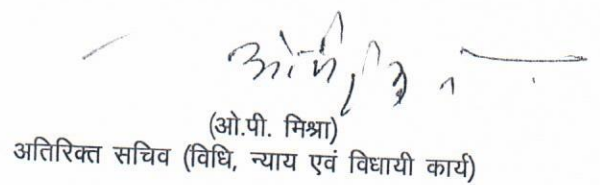 (ओ.पी. मिश्रा)
अतिरिक्त सचिव (विधि, न्याय एवं विधायी कार्य)